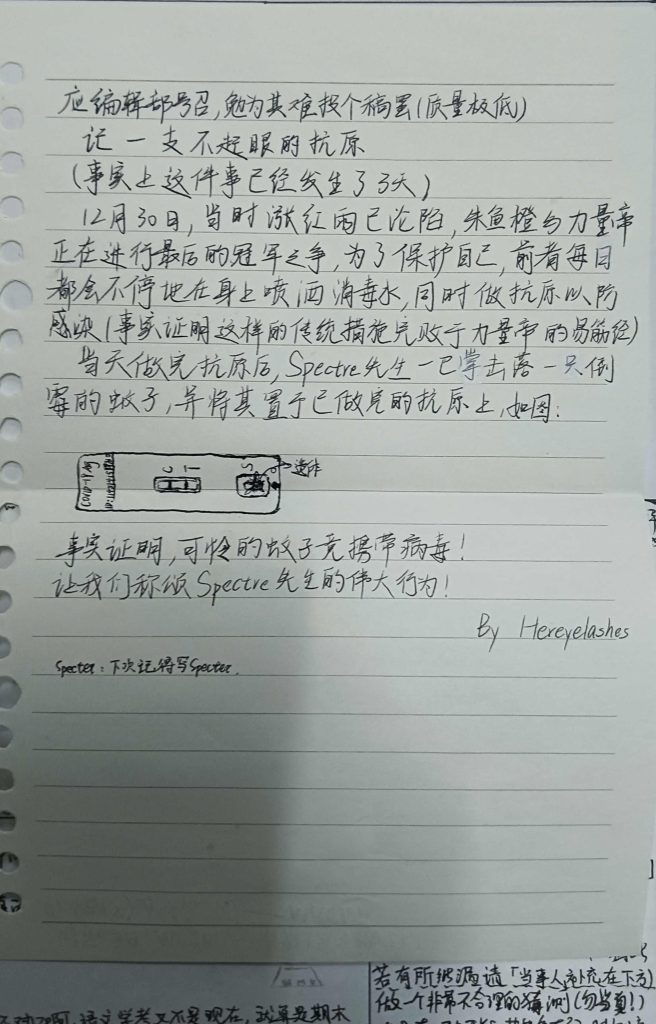 应编辑部号召,勉为其难投个稿罢(质量极低)
记一支不起眼的抗原
(事实上这件事已经发生了3天)
12月30日,当时涨红雨已沦陷,朱鱼橙与力量帝
正在进行最后的冠军之争,为了保护自己,前者每日
都会不停地在身上喷洒消毒水,同时做抗原以防
感染(事实证明这样的传统措施完败于力量帝的易筋经)
当天做完抗原后,Spectre先生一巴掌击落一只倒
霉的蚊子,并将其置于已做完的抗原上,如图:
C T S
遗体
事实证明,可怜的蚊子竟携带病毒!
让我们称颂Spectre先生的伟大行为!
By Hereyelashes
Specter:下次记得写Specter.
若有所纰漏请「当事人补充在下方」
做一个非常不合理的猜测(勿当真!)
语文学考又不是现在,就算是期末